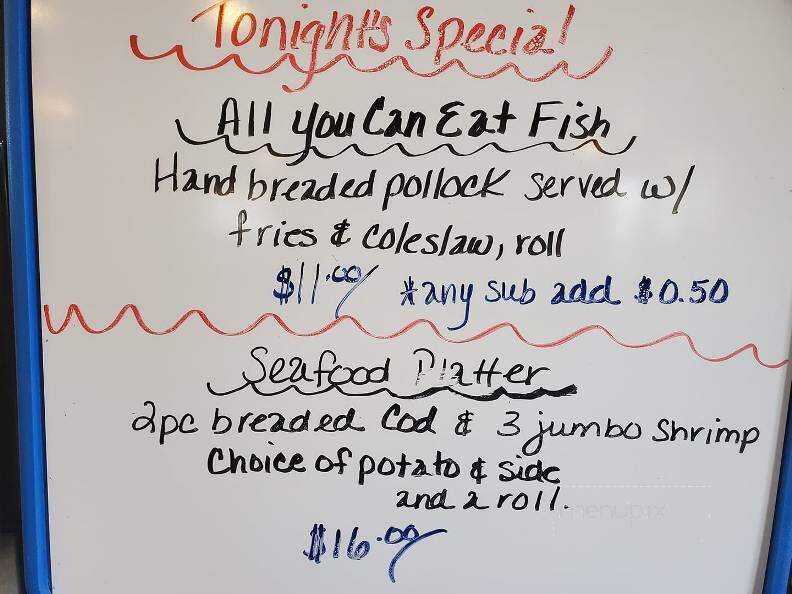 Tonight's Special
All you Can Eat Fish
Hand breaded pollock served w/
fries & coleslaw, roll
$11.00 *any sub add $0.50
Seafood Platter
2pc breaded Cod & 3 jumbo Shrimp
Choice of potato & side
and a roll.
$16.00
menupix